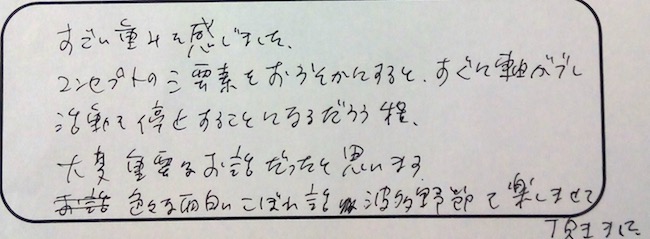 すごい重みを感じました、
コンセプトの三要素をおろそかにすると、すぐに軸がブレ
活動を停止することになるだろう程、
大変重要なお話だったと思います
お話 色々な面白いこぼれ話や波多野節を楽しませて
頂きました